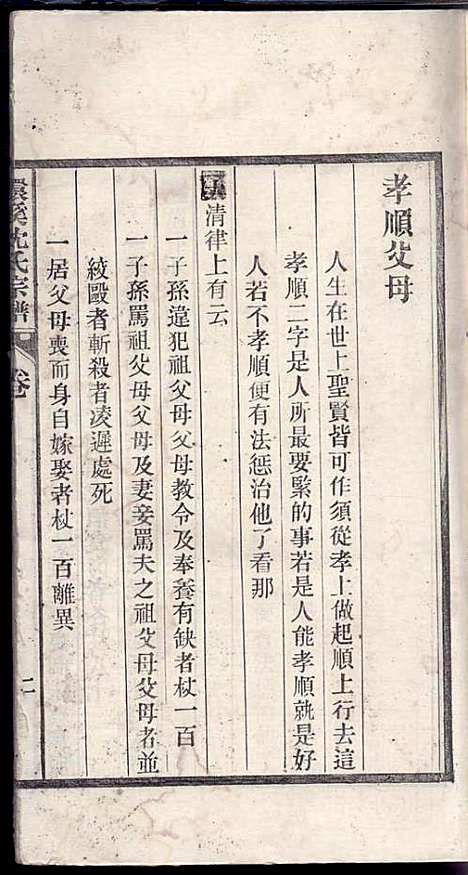 孝順父母
人生在世上聖賢皆可作須從孝上做起順上行去這
孝順二字是人所最要緊的事若是人能孝順就是好
人若不孝順便有法惩治他了看那
清律上有云
一子孫違犯祖父母父母教令及奉養有缺者杖一百
一子孫罵祖父母父母及妻妾罵夫之祖父母父母者並
絞毆者斬殺者凌遲處死
一居父母喪而身自嫁娶者杖一百離異
溪沈氏宗譜 卷 二